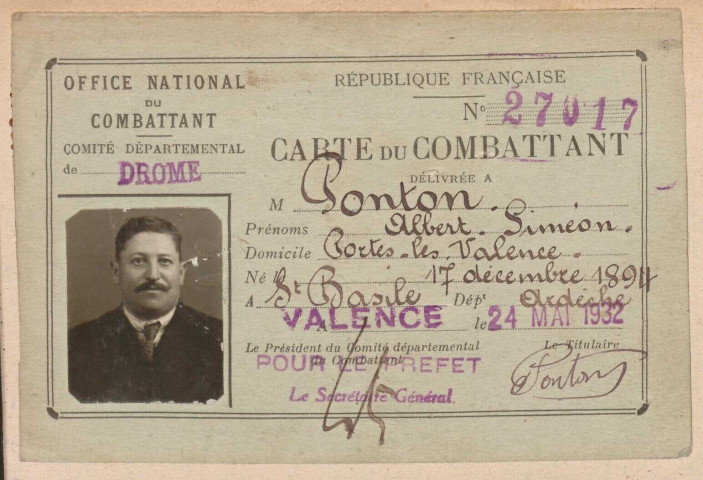 OFFICE NATIONAL
DU
COMBATTANT
COMITÉ DÉPARTEMENTAL
de DROME
RÉPUBLIQUE FRANÇAISE
N° 27017
CARTE DU COMBATTANT
DÉLIVRÉE A
M Ponton.
Prénoms Albert. Siméon.
Domicile Portes-les-Valence.
Né l 17 décembre 1894
A St Basile Dépt Ardèche
VALENCE le 24 MAI 1932
Le Président du Comité départemental
du Combattant
POUR LE PREFET
Le Secrétaire Général.
Le Titulaire
Ponton